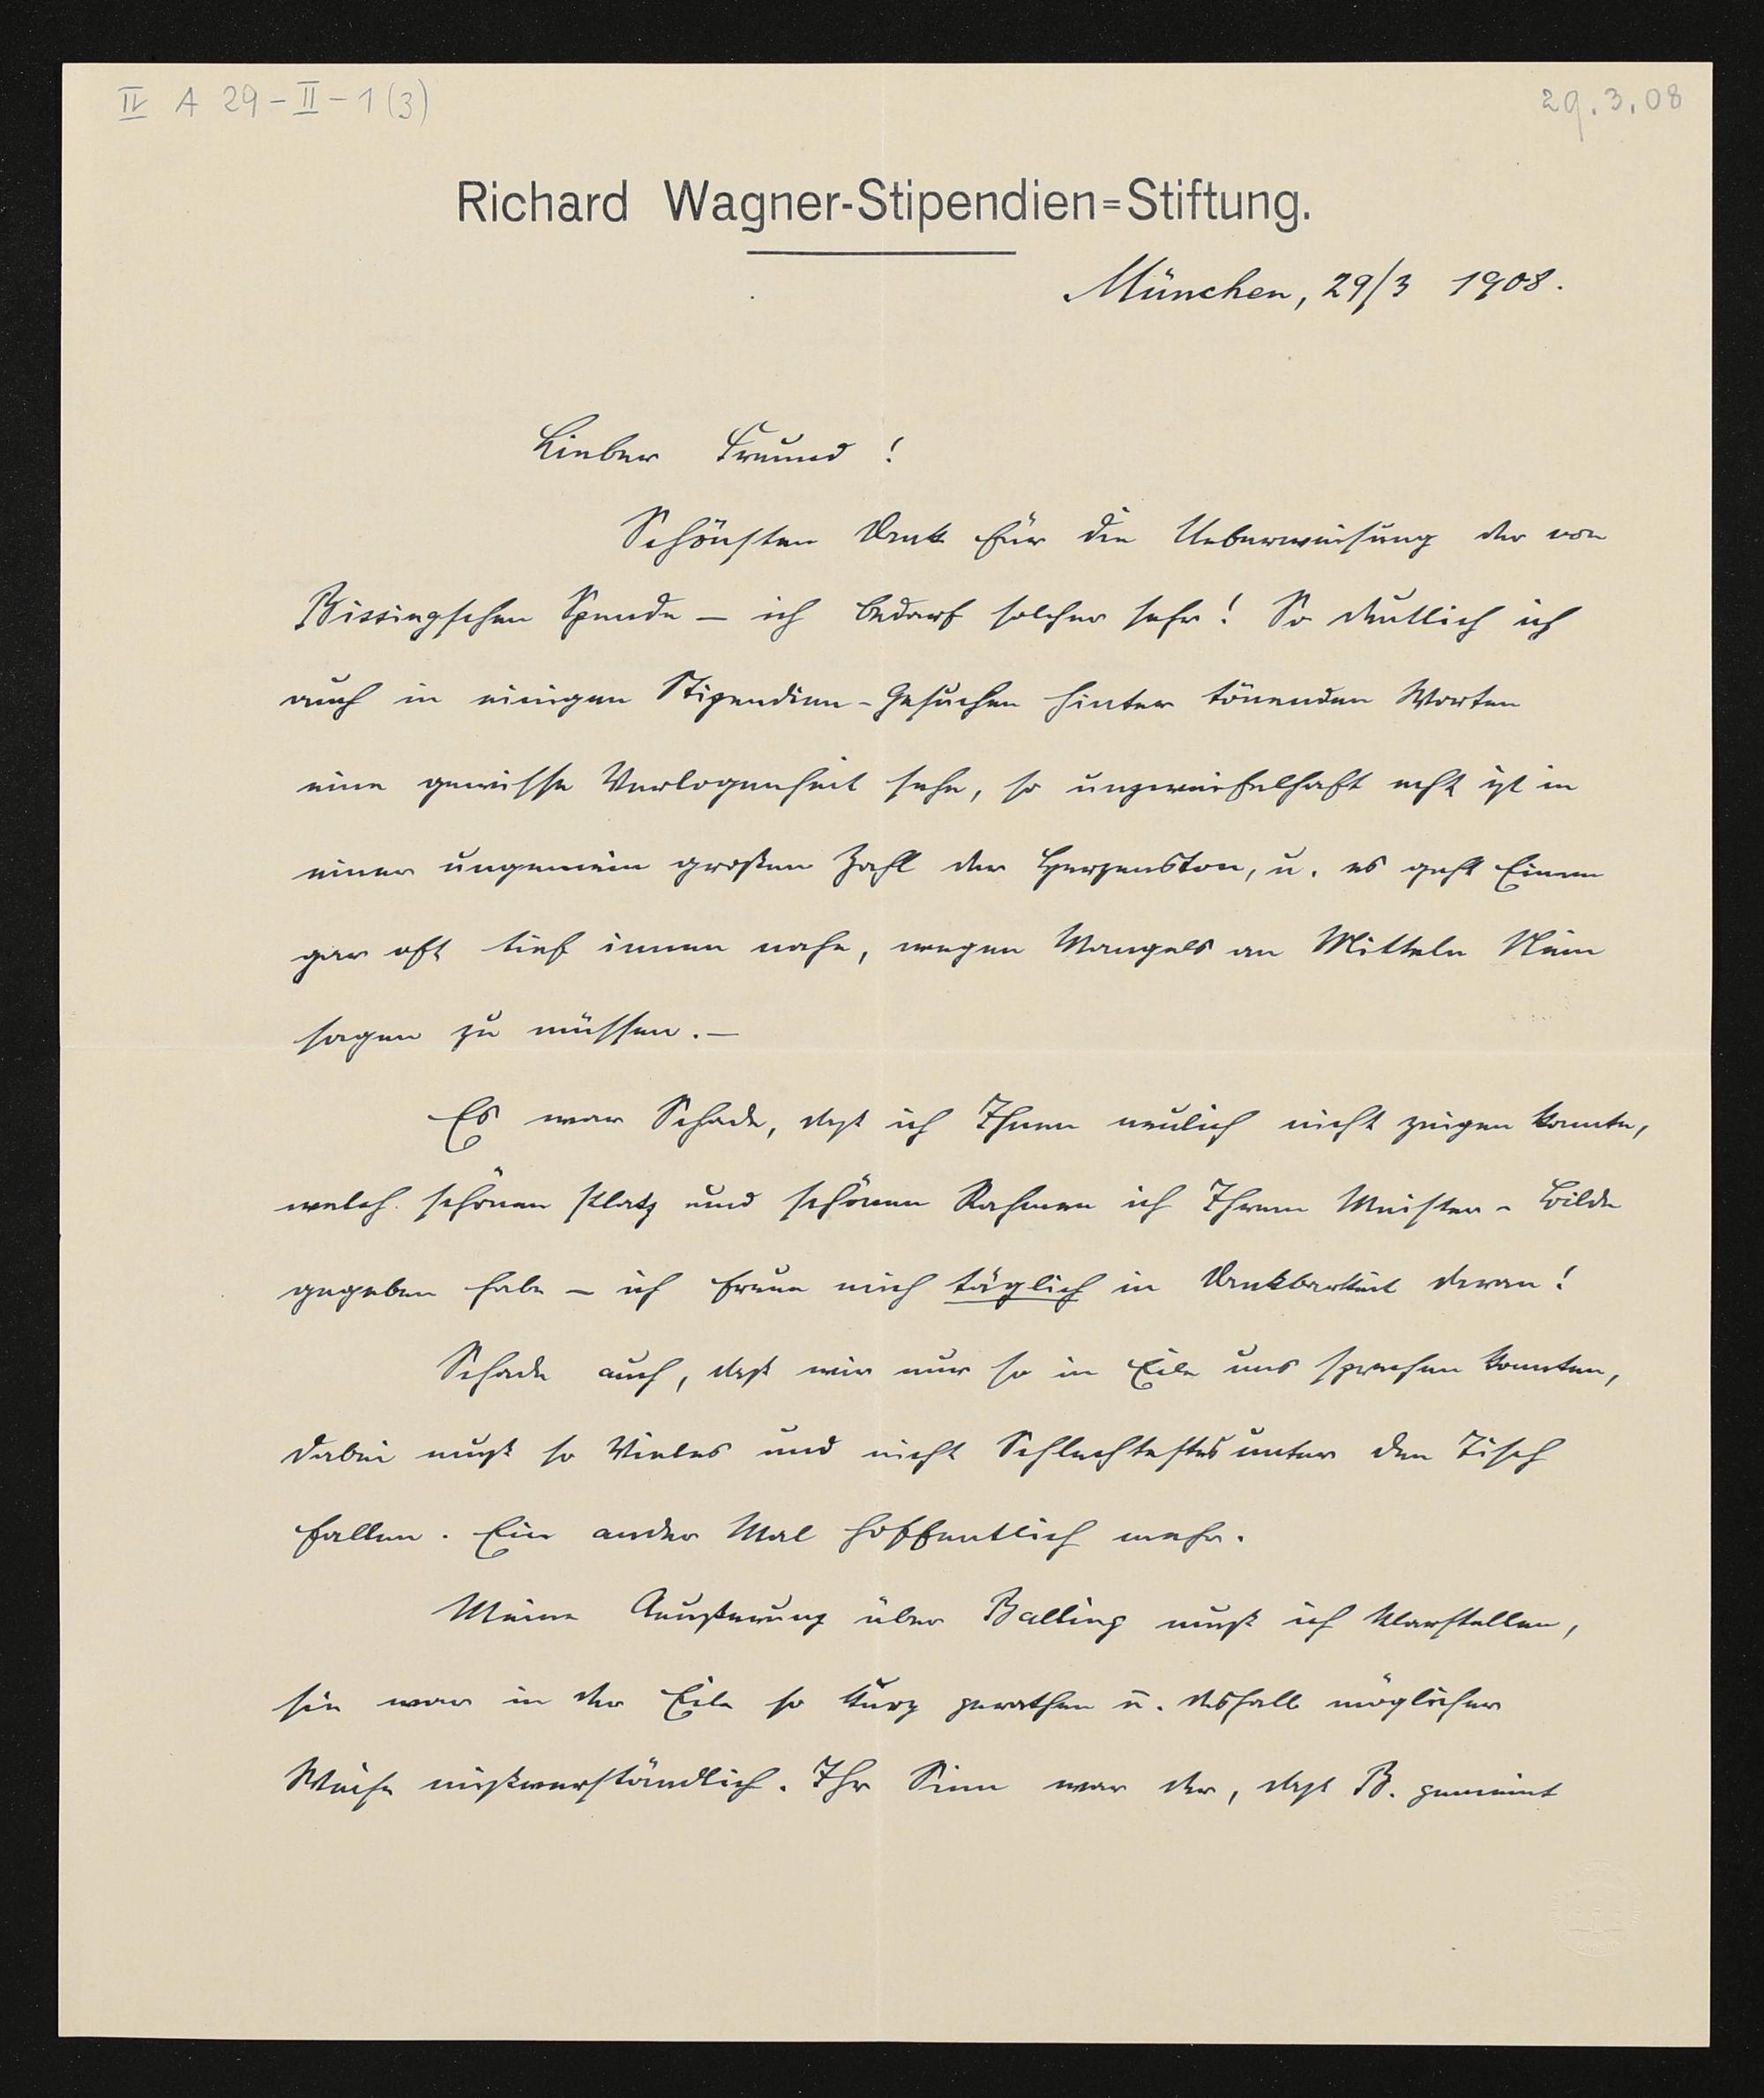 IV A 29-II-1(3)
29.3.08
Richard Wagner-Stipendien=Stiftung.
München, 29/3 1908.
Lieber Freund!
Schönsten Dank für die Ueberweisung der von
Bissingschen Spende – ich bedarf solcher sehr! So deutlich ich
auch in einigen Stipendien-Gesuchen hinter tönenden Worten
eine gewisse Verlogenheit sehe, so unzweifelhaft echt ist in
einer ungemein großen Zahl der Herzenston, u. es geht Einem
gar oft tief innen nahe, wegen Mangels an Mitteln Nein
sagen zu müssen. –
Es war Schade, daß ich Ihnen neulich nicht zeigen konnte,
welch schönen Platz und schönen Rahmen ich Ihrem Meister-Bilde
gegeben habe – ich freue mich täglich in Dankbarkeit daran!
Schade auch, daß wir nur so in Eile uns sprechen konnten,
dabei mußt so Vieles und nicht Schlechtestes unter den Tisch
fallen. Ein ander Mal hoffentlich mehr.
Meine Aeußerung über Balling muß ich klarstellen,
sie war in der Eile so kurz gerathen u. deshalb möglicher
Weise mißverständlich. Ihr Sinn war der, daß B. gemeint